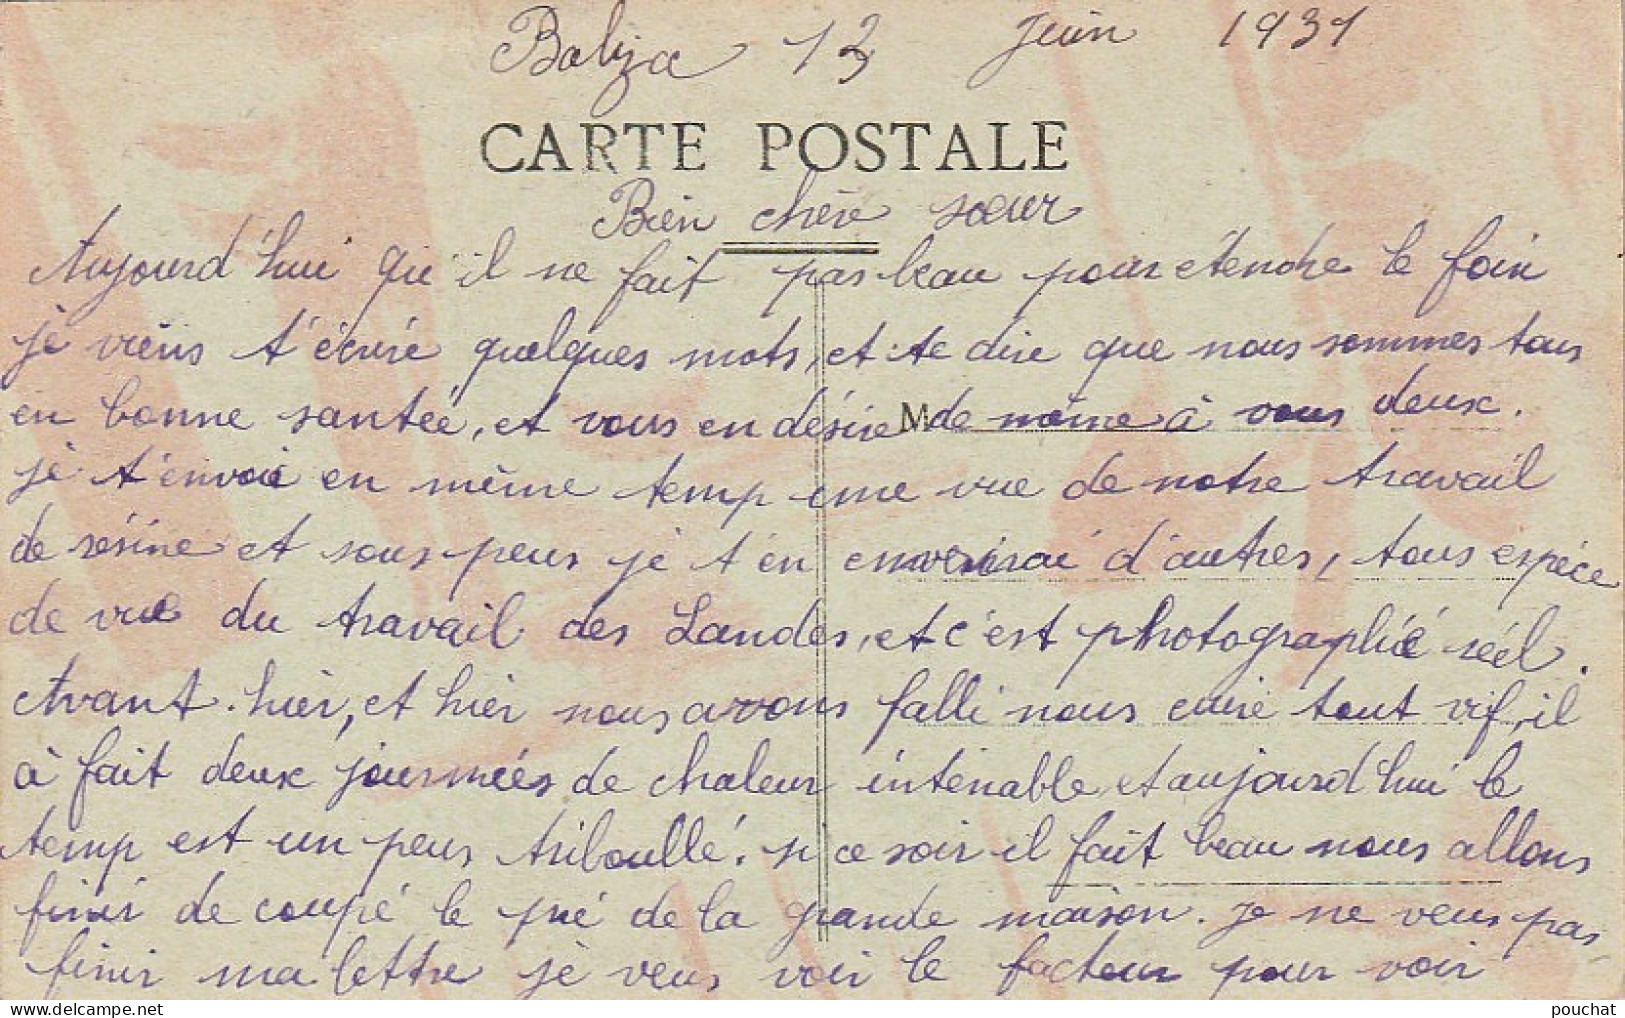 Juin 1931
CARTE POSTALE
Bien chère sœur
Aujourd'hui qu'il ne fait pas beau pour étendre le foin
je viens t'écrire quelques mots, et te dire que nous sommes tous
en bonne santée, et vous en désire M de même à vous deux.
je t'envoie en même temp une vue de notre travail
de résine et sous peus je t'en enverirai d'autres, tous espéce
de vue du travail des Landes, et c'est photographié réel.
Avant. hier, et hier nous avons falli nous cuire tout vif, il
à fait deux journées de chaleur intenable, et aujourd'hui le
temp est un peus triboullé. si ce soir il fait beau nous allons
finir de coupé le pré de la grande maison. Je ne veus pas
finir ma lettre je veus voir le facteur pour voir
pouchat